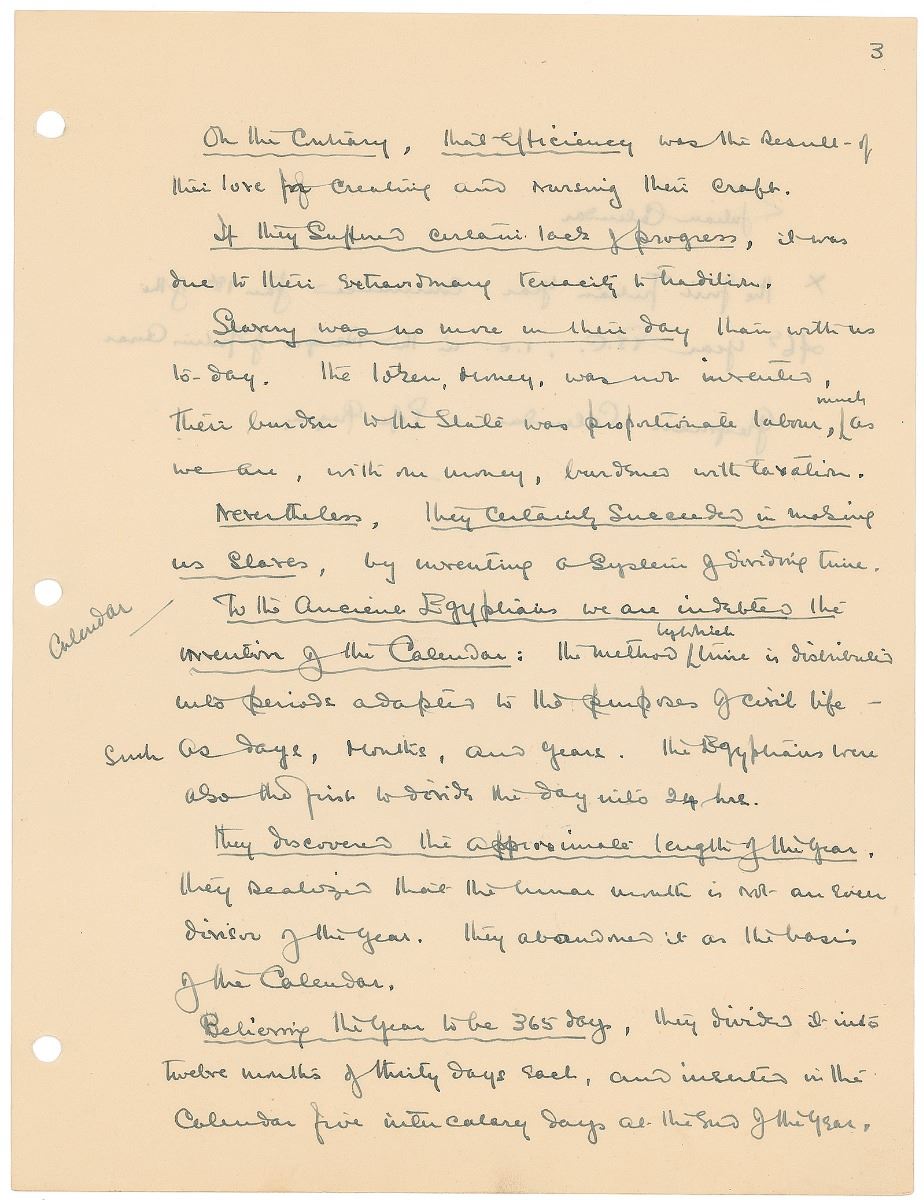 3
On the Contrary, that efficiency was the result of
their love for creating and nursing their craft.
If they suffered certain lack of progress, it was
due to their extraordinary tenacity to tradition.
Slavery was no more in their day than with us
to-day. The token, money, was not invented,
their burden to the State was proportionate labour, much as
we are, with our money, burdened with taxation.
Nevertheless, they certainly succeeded in making
us slaves, by inventing a System of dividing time.
Calendar
To the Ancient Egyptians we are indebted the
invention of the Calendar: the method by which time is distributed
into periods adapted to the purposes of civil life –
Such as days, months, and years. The Egyptians were
also the first to divide the day into 24 hrs.
They discovered the approximate length of the year.
They realized that the lunar month is not an even
divisor of the year. They abandoned it as the basis
of the Calendar.
Believing the year to be 365 days, they divided it into
twelve months of thirty days each, and inserted in the
Calendar five intercalary days at the end of the year.